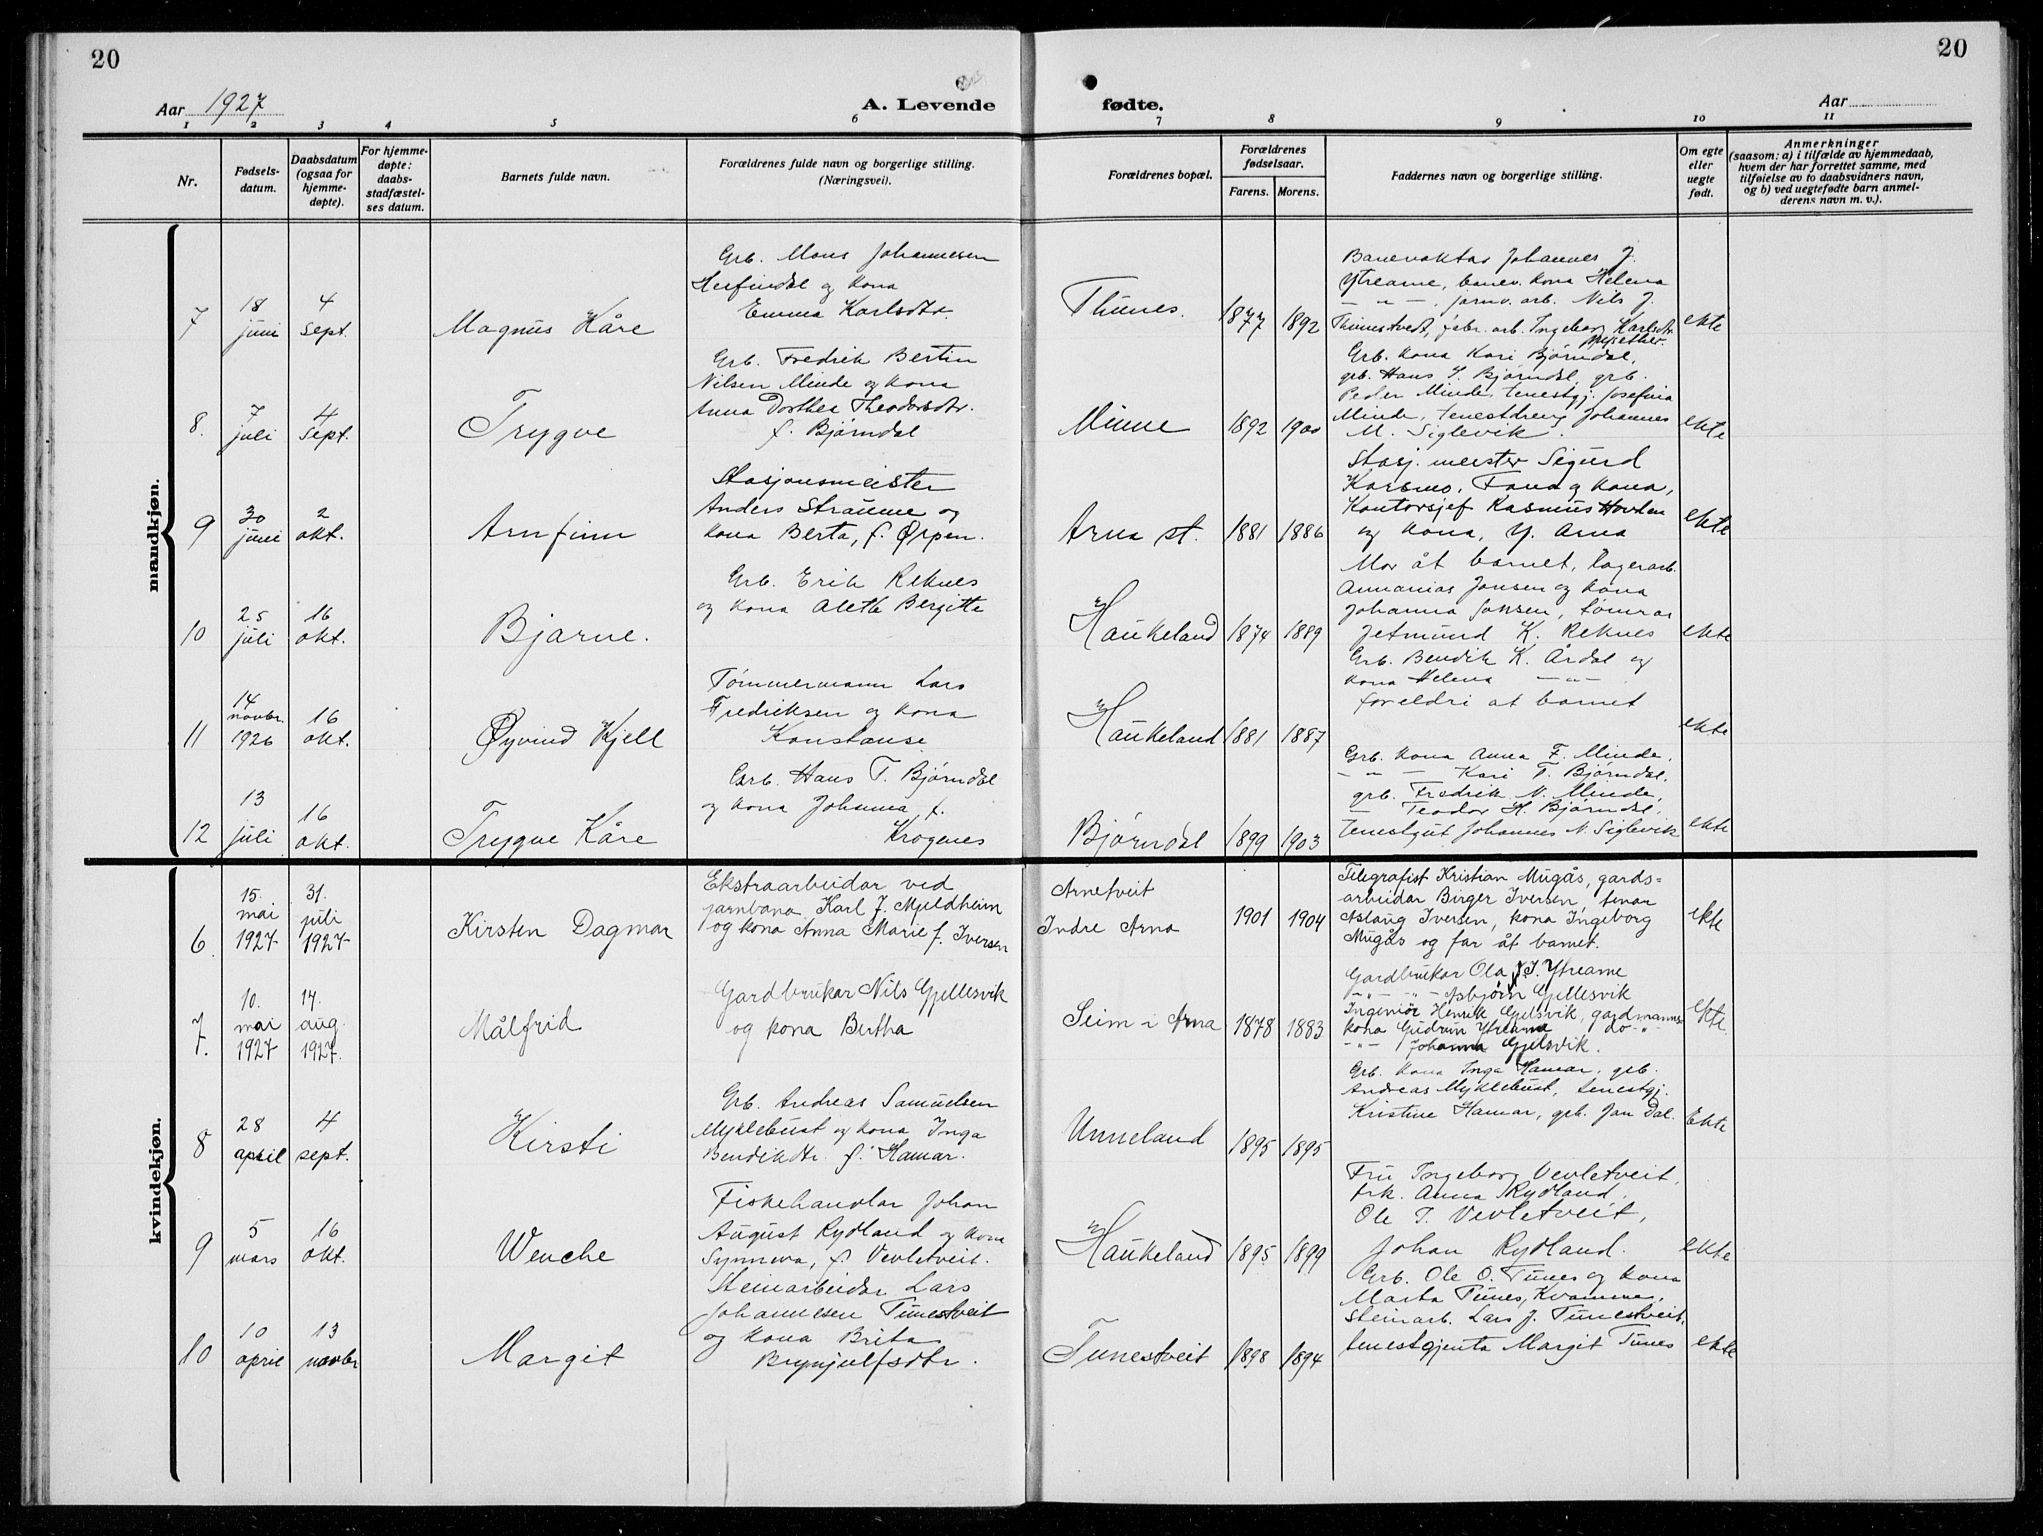 20
20
Aar 1927
A. Levende
fødte.
Aar
1 2 3 4 5 6 7 8 9 10 11
Nr.
Fødsels-
datum.
Daabsdatum
(ogsaa for
hjemme-
døpte).
For hjemme-
døpte:
daabs-
stadfæstel-
ses datum.
Barnets fulde navn.
Forældrenes fulde navn og borgerlige stilling.
(Næringsvei).
Forældrenes bopæl.
Forældrenes
fødselsaar.
Farens. Morens.
Faddernes navn og borgerlige stilling.
Om egte
eller
uegte
født.
Anmerkninger
(saasom: a) i tilfælde av hjemmedaab,
hvem der har forrettet samme, med
tilføielse av to daabsvidners navn,
og b) ved uegtefødte barn anmel-
derens navn m. v.).
mandkjøn.
7
18
juni
4
sept.
Magnus Kåre
Grb. Mons Johannesen
Herfindal og kona
Emma Karlsdtr.
Thunes.
1877 1892
Banevaktar Johannes J.
Ytrearne, banev. kona Helena
— " — , jarnv. arb. Nils J.
Thunestvedt, febr. arb. Ingeborg Karlsdtr.
ekte
8.
7
juli
4
sept.
Trygve
Grb. Fredrik Bertin
Nilsen Minde og kona
Anna Dorthea Theodorsdtr.
f. Bjørndal
Minne
1892 1900
Grb. kona Kari Bjørndal,
grb. Hans T. Bjørndal, grb.
Peder Minde, tenestgj. Josefina
Minde, tenestdreng Johannes
M. Siglevik.
ekte
9
30
juni
2
okt.
Arnfinn
Stasjonsmeister
Anders Straume og
kona Berta, f. Ørpen.
Arna st.
1881 1886
Stasj. meister Sigurd
Karsmo, Fana og kona,
Kontorsjef Rasmus Hovden
og kona, Y. Arna
ekte
10
25
juli
16
okt.
Bjarne.
Grb. Erik Reknes
og kona Alette Bergitte
Haukeland
1874 1889
Mor åt barnet, lagerarb.
Annanias Jonsen og kona
Johanna Jonsen, tømrar
Jetmund K. Reknes
ekte
11
14
novbr.
1926
16
okt.
Øyvind Kjell
Tømmermann Lars
Fredriksen og kona
Konstanse
Haukeland
1881 1887
Grb. Bendik K. Årdal og
kona Helena — " —
foreldri åt barnet
ekte
12
13
juli
16
okt.
Trygve Kåre
Grb. Hans T. Bjørndal
og kona Johanna f.
Krogenes
Bjørndal
1899 1903
Grb. kona Anna F. Minde,
— " — Kari T. Bjørndal,
grb. Fredrik N. Minde,
— Teodor H. Bjørndal,
tenestgut Johannes N. Siglevik
ekte
kvindekjøn.
6.
15.
mai
1927
31.
juli
1927
Kirsten Dagmar
Ekstraarbeidar ved
jarnbana Karl J. Mjeldheim
og kona Anna Marie f. Iversen
Arnetveit
Indre Arna
1901 1904
Telegrafist Kristian Mugås, gards=
arbeidar Birger Iversen, tenar
Aslaug Iversen, kona Ingeborg
Mugås og far åt barnet.
ekte
7.
10.
mai
1927
14.
aug.
1927.
Målfrid
Gardbrukar Nils Gjellesvik
og kona Bertha
Seim i Arna
1878 1883
Gardbrukar Ola J. Ytrearne
— " — " — Asbjørn Gjellesvik
Ingeniør Henrik Gjelsvik, gardmanns-
kona Gudrun Ytrearne do — " —
— " — Johanna Gjelsvik.
ekte
8
28
april
4
sept.
Kirsti
Grb. Andreas Samuelsen
Myklebust og kona Inga
Bendikdtr. f. Hamar.
Unneland
1895 1895
Grb. kona Inga Hamar, grb.
Andreas Myklebust, tenestgj.
Kristine Hamar, grb. Jan Dal.
Ekte
9
5
mars
16
okt.
Wenche
Fiskehandlar Johan
August Rydland og kona
Synneva, f. Vevletveit.
Haukeland
1895 1899
Fru Ingeborg Vevletveit,
frk. Anna Rydland,
Ole T. Vevletveit,
Johan Rydland.
ekte
10
10
april
13
novbr
Margit
Steinarbeidar Lars
Johannesen Tunestveit
og kona Brita
Brynjulfsdtr.
Tunestveit
1898 1894
Grb. Ole O. Tunes og kona
Marta Tunes, Kvamme,
Steinarb. Lars J. Tunestveit,
tenestgjenta Margit Tunes
ekte